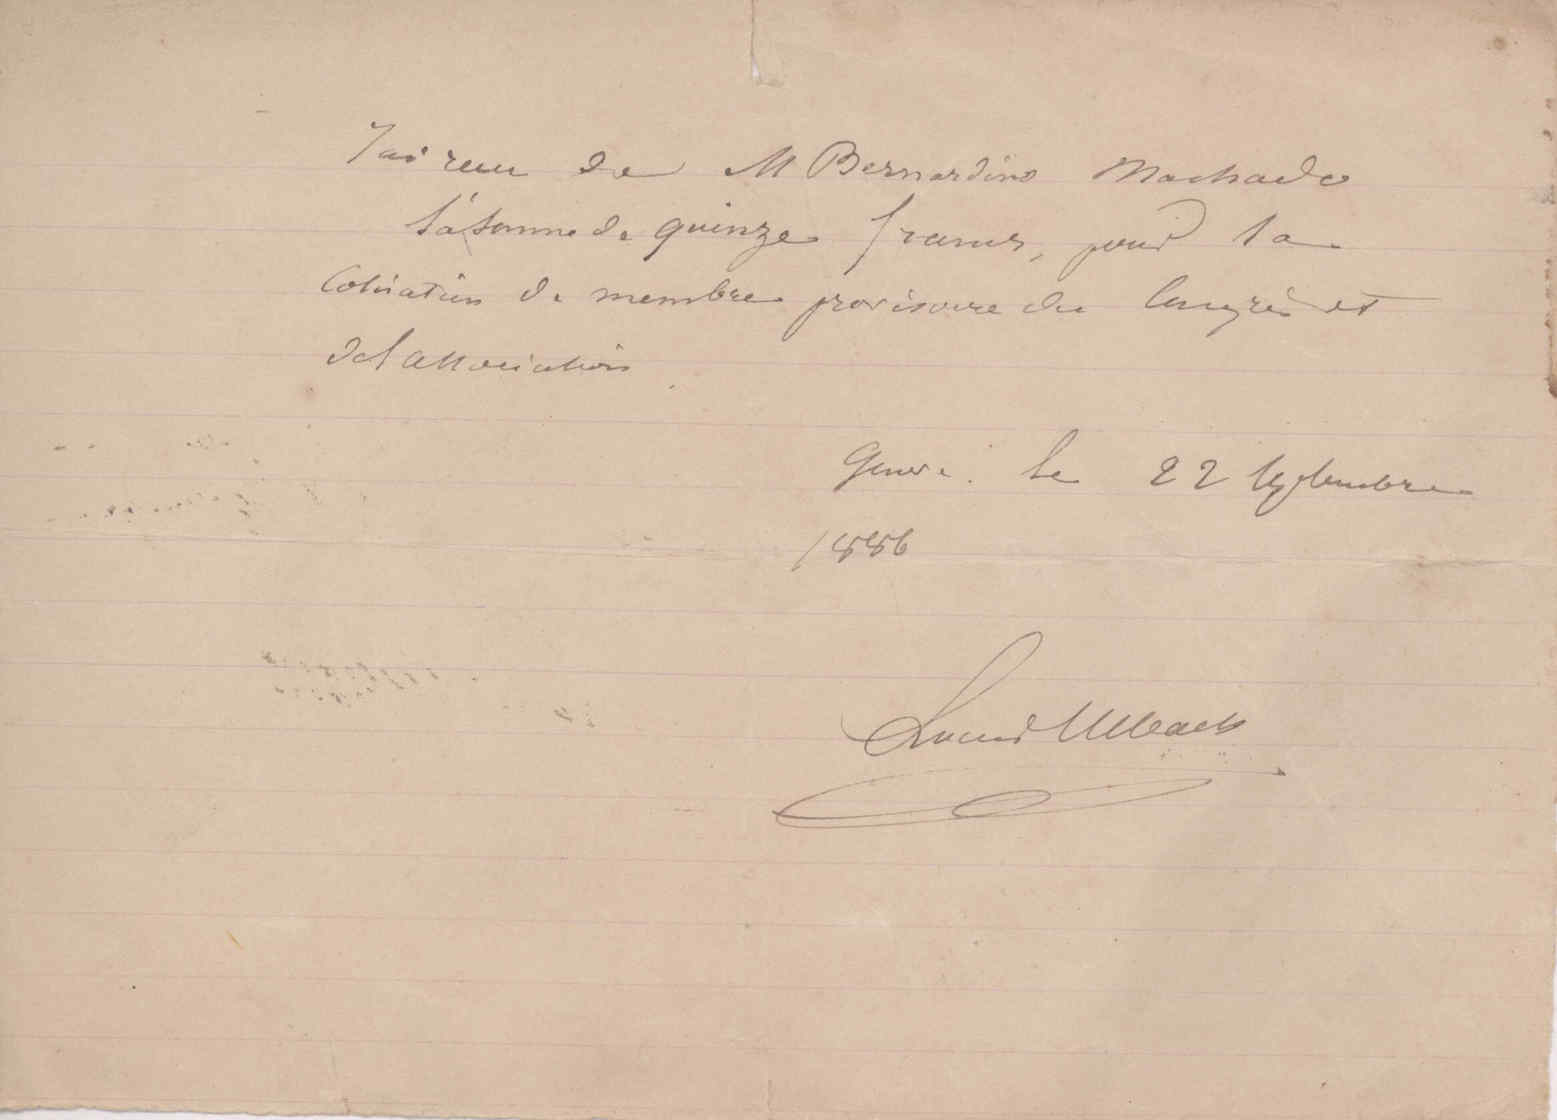 J'ai reçu de M Bernardino Machado
la somme de quinze francs, pour la
Cotisation de membre provisoire du Congrès et
de l'association
Genève. le 22 Septembre
1886
Louis Ulbach